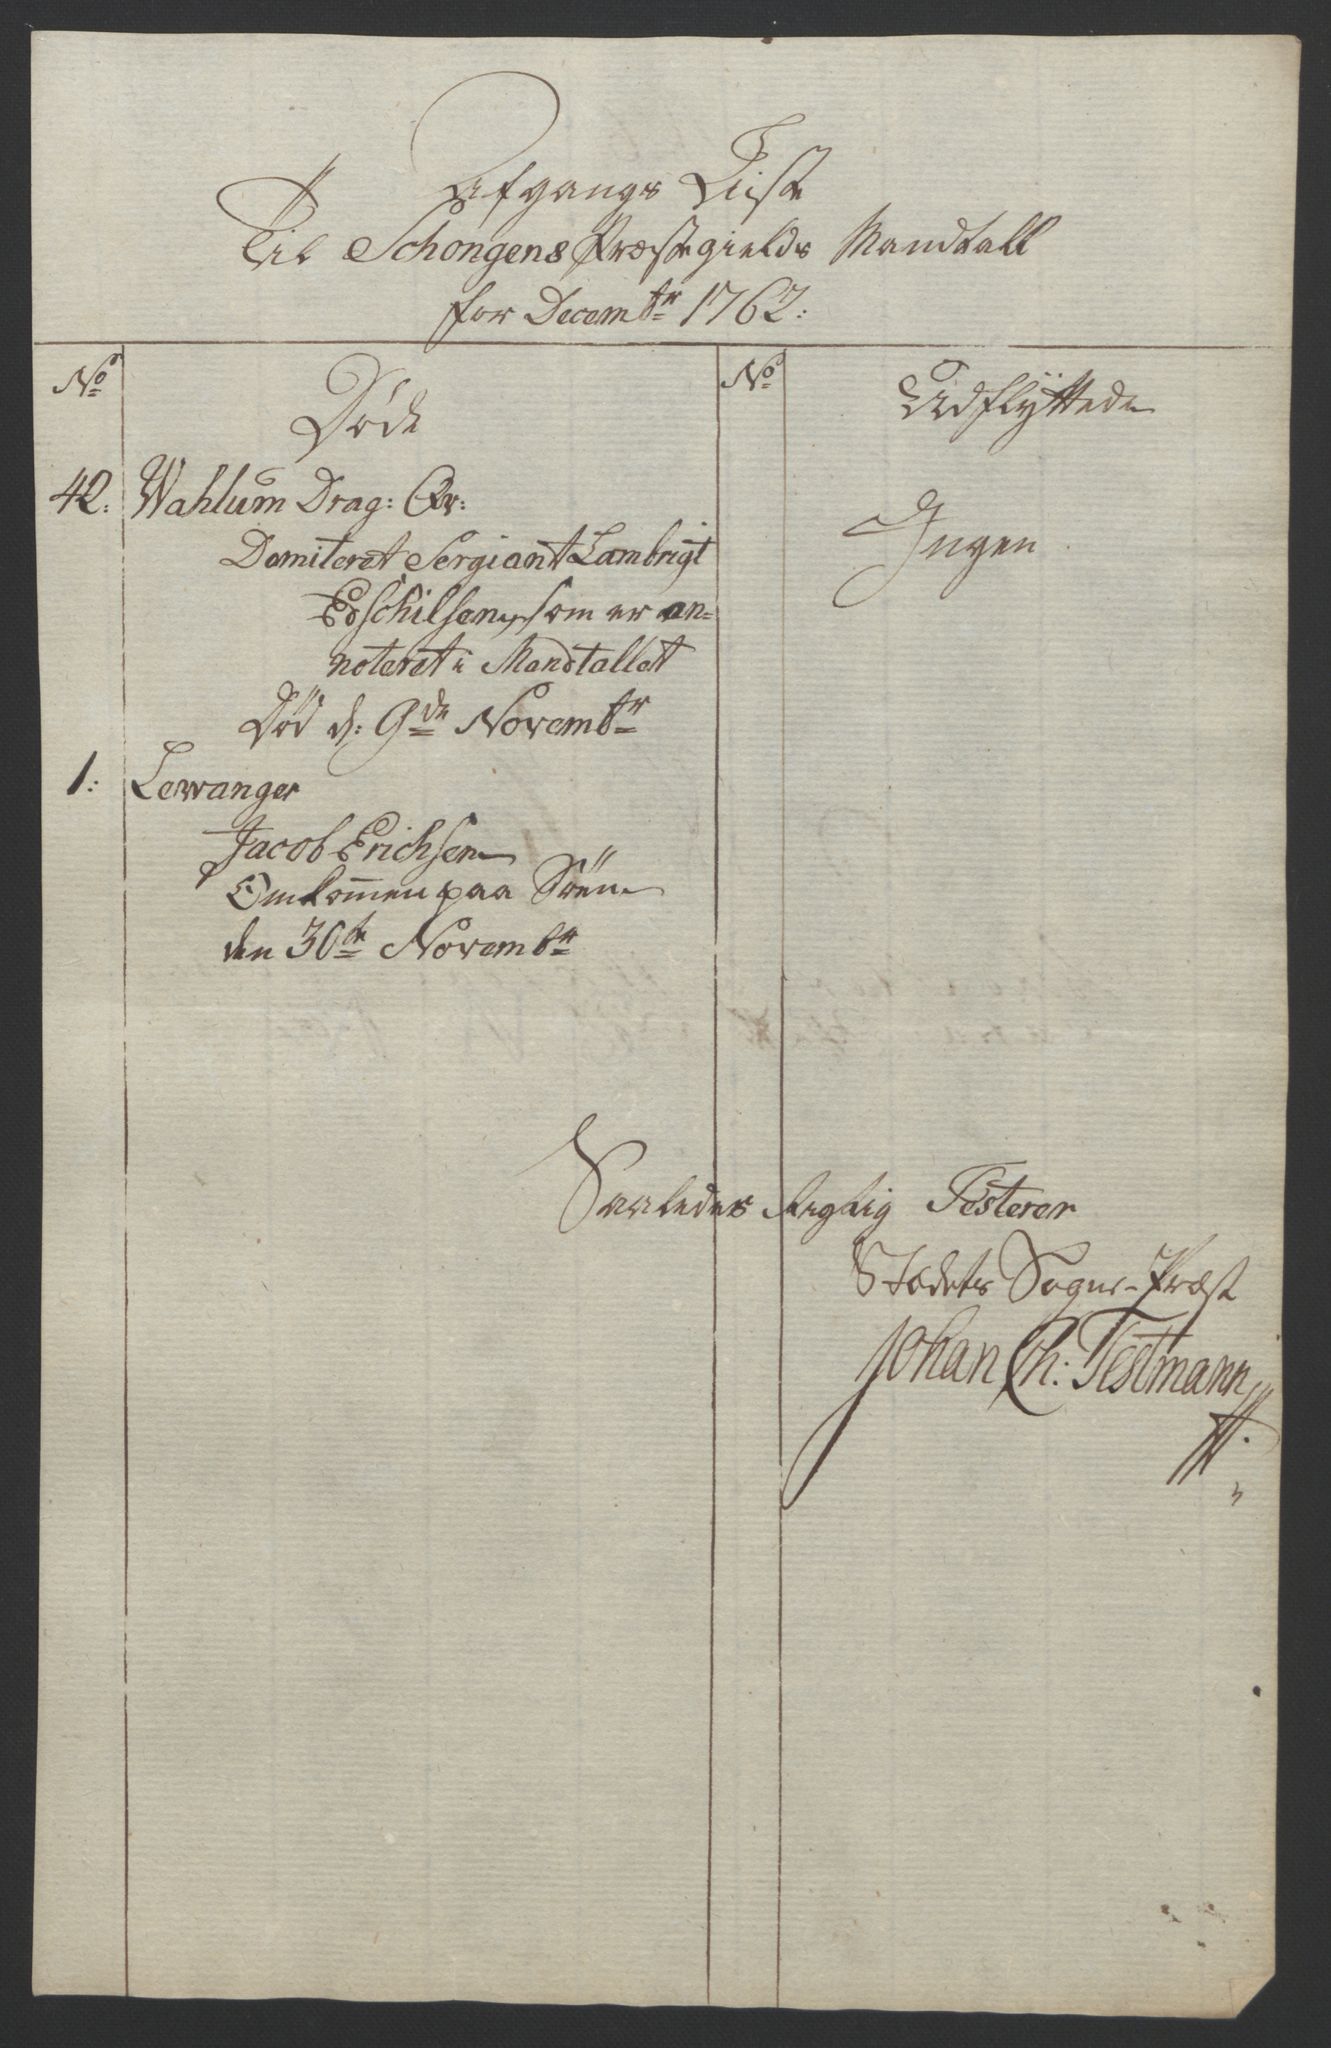 Afgangs Liste
Til Schongens Præstegields Mandtall
for Decembr 1762:
No
Døde
No
Udflÿttede
42. Wahlum Drag: Qr:
Ingen
Demiteret Sergiant Lambrigt
Edschilsen, som er an=
noteret i Mandtallet
Død d: 9de Novembr
1: Lewanger
Jacob Erichsen
Omkom̄en paa Söen
den 30te Novembr
Saaledes rigtig Testerer
Stædets Sogne-Præst
Johan Ch: Testmann